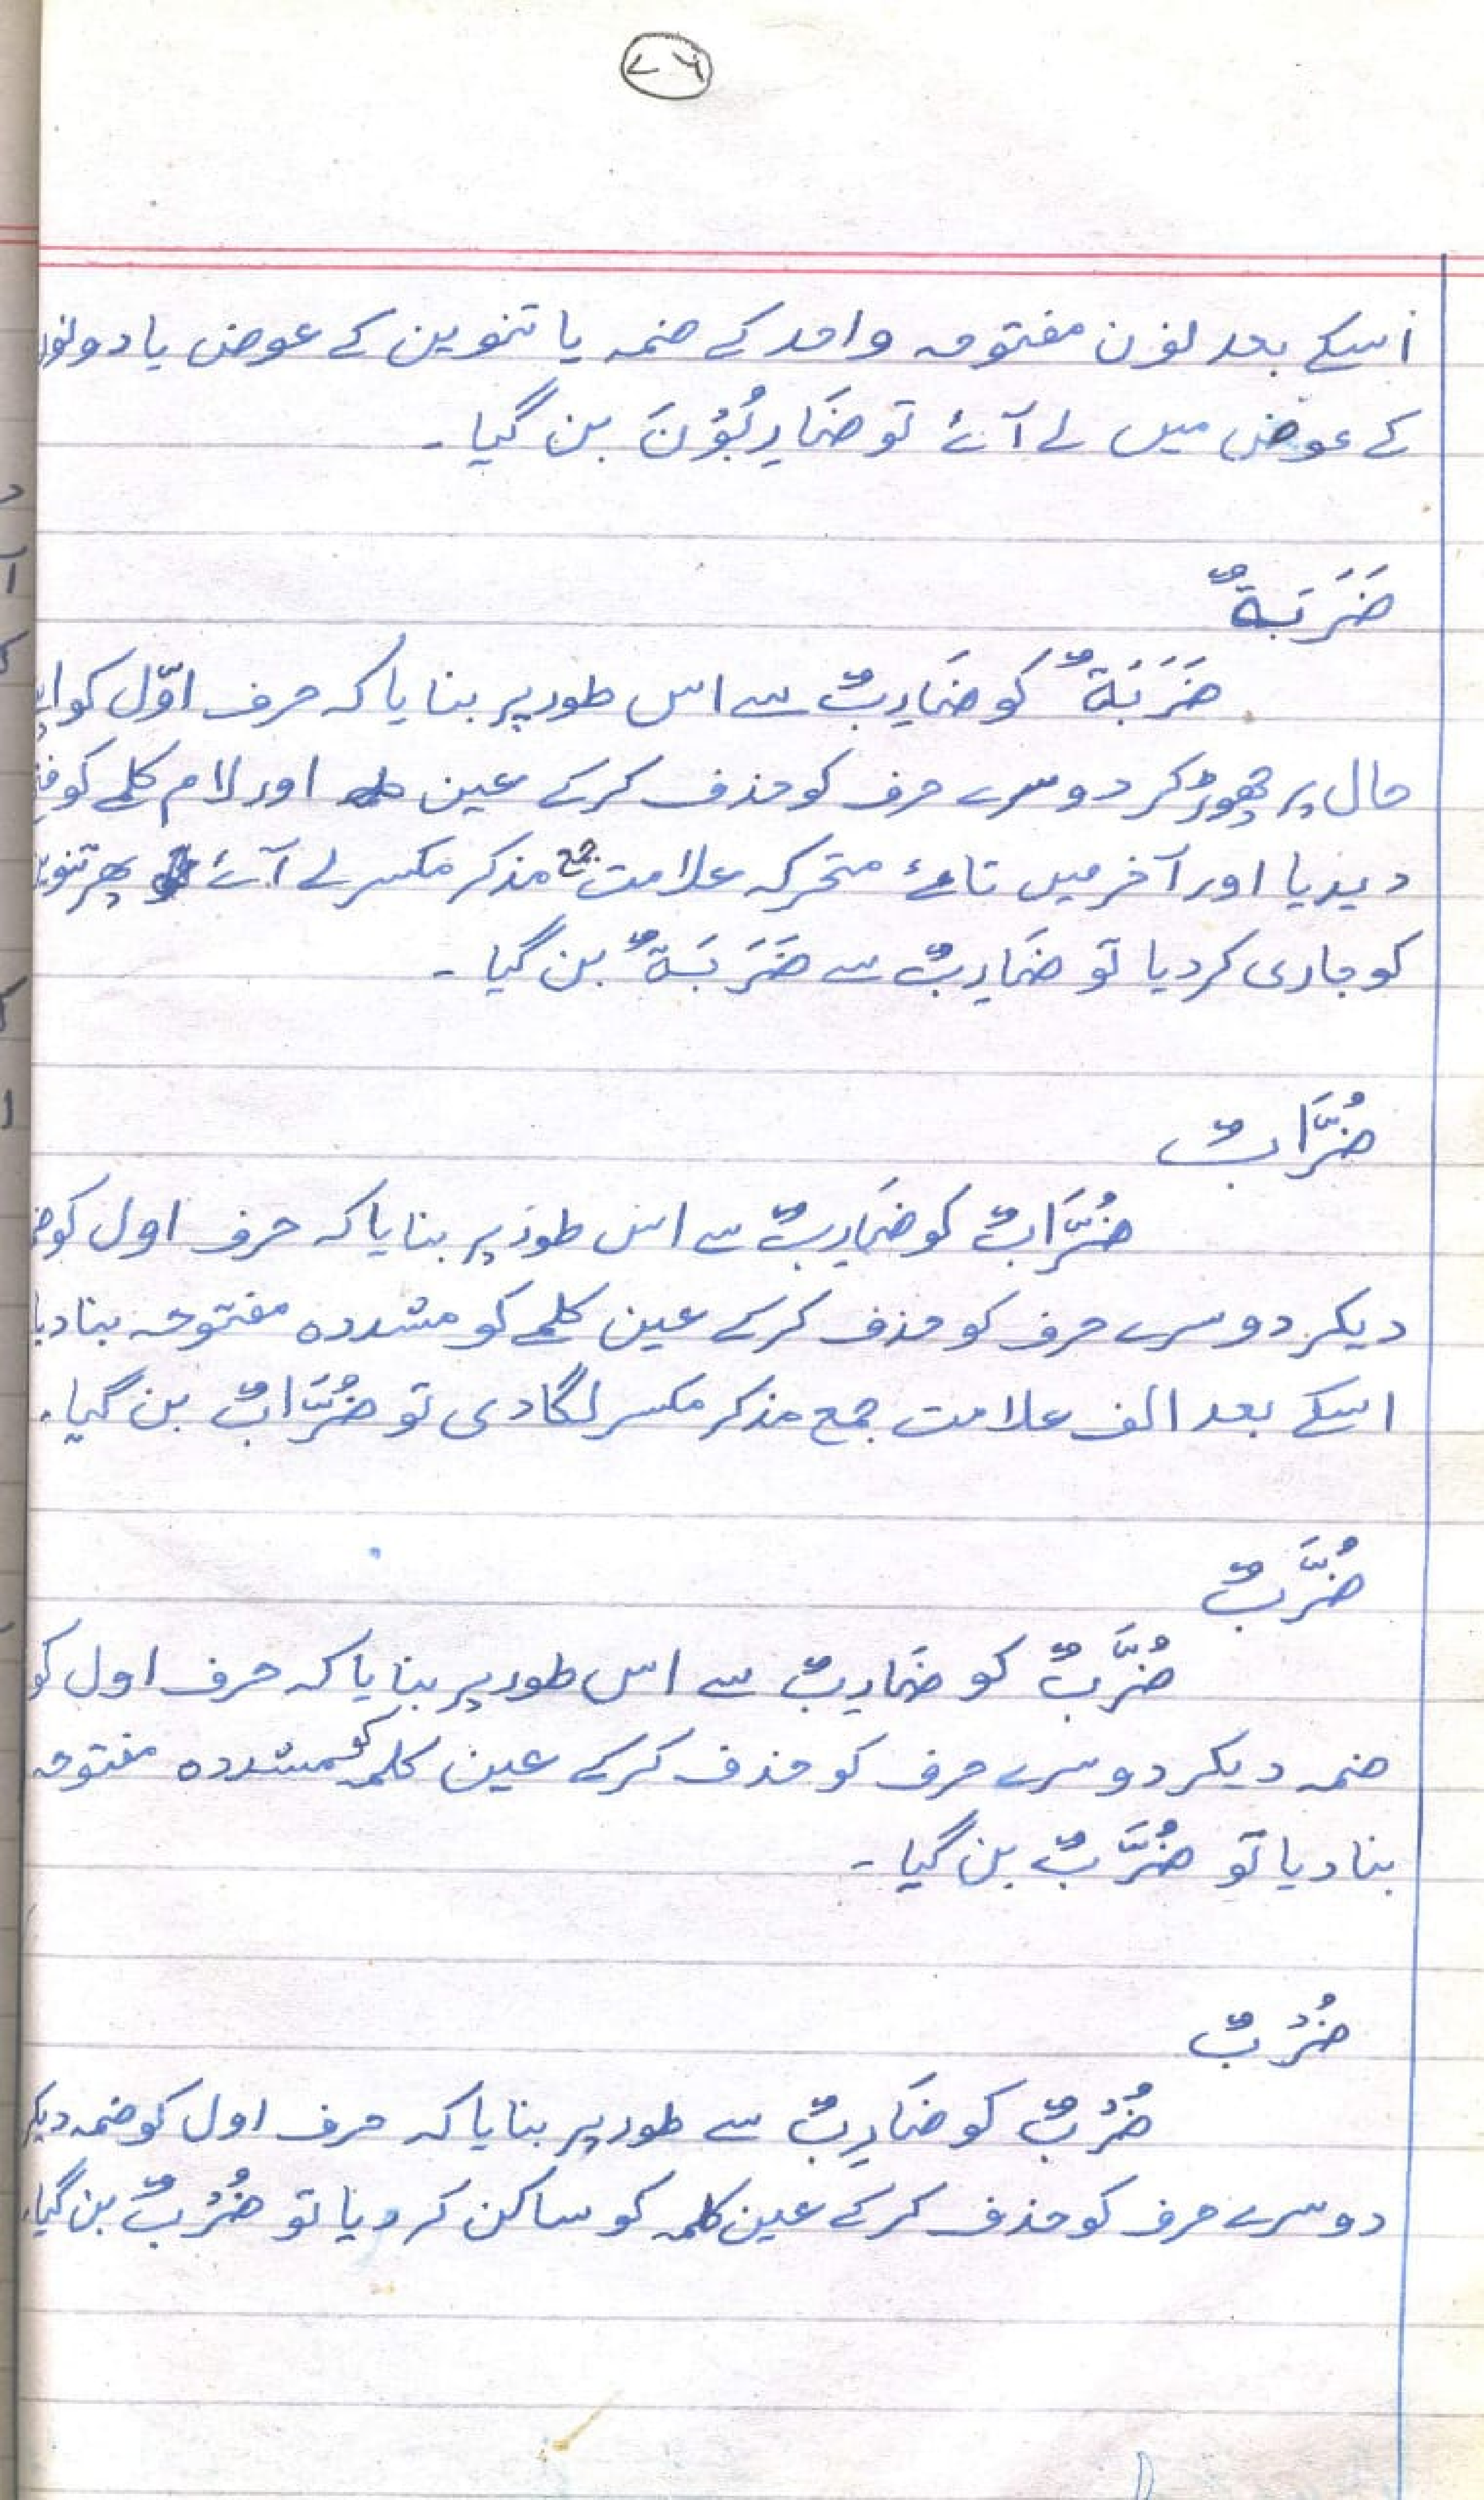 ۷۶
اسکے بعد نون مفتوحہ واحد کے ضمہ یا تنوین کے عوض یا دونوں
کے عوض میں لے آئے تو ضَارِبُوْنَ بن گیا۔
ضَرَبَةٌ
ضَرَبَةٌ کو ضَارِبٌ سے اس طور پر بنایا کہ حرف اوّل کو
حال پر چھوڑ کر دوسرے حرف کو حذف کرکے عین اور لام کلمے کو
دیدیا اور آخر میں تائے متحرکہ علامت جمع مذکر مکسر لے آئے پھر تنوین
کو جاری کردیا تو ضَارِبٌ سے ضَرَبَةٌ بن گیا۔
ضُرَّابٌ
ضُرَّابٌ کو ضَارِبٌ سے اس طور پر بنایا کہ حرف اول کو
دیکر دوسرے حرف کو حذف کرکے عین کلمے کو مشددہ مفتوحہ بنا دیا
اسکے بعد الف علامت جمع مذکر مکسر لگا دی تو ضُرَّابٌ بن گیا۔
ضُرَّبٌ
ضُرَّبٌ کو ضَارِبٌ سے اس طور پر بنایا کہ حرف اول کو
ضمہ دیکر دوسرے حرف کو حذف کرکے عین کلمہ کو مشددہ مفتوحہ
بنا دیا تو ضُرَّبٌ بن گیا۔
ضُرْبٌ
ضُرْبٌ کو ضَارِبٌ سے طور پر بنایا کہ حرف اول کو ضمہ دیکر
دوسرے حرف کو حذف کرکے عین کلمہ کو ساکن کر دیا تو ضُرْبٌ بن گیا۔